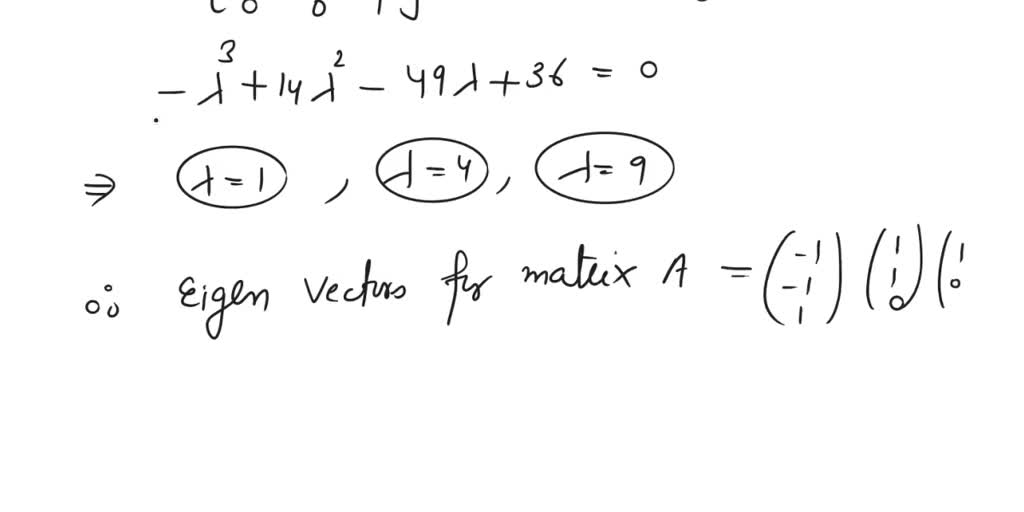 -λ³ + 14λ² - 49λ + 36 = 0
⇒ λ=1 , λ=4 , λ=9
∴ Eigen Vectors for matrix A = (-1 -1 1) (1 1 0) (1 0